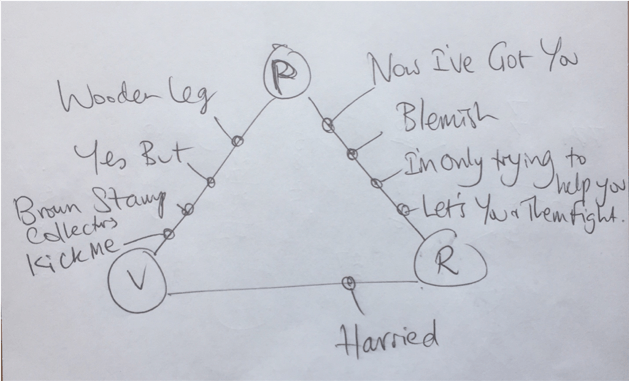 P
Now I've Got You
Wooden Leg
Blemish
Yes But
I'm only trying to
help you
Brown Stamp
Collectors
Let's You & Them Fight.
Kick Me
V
R
Harried